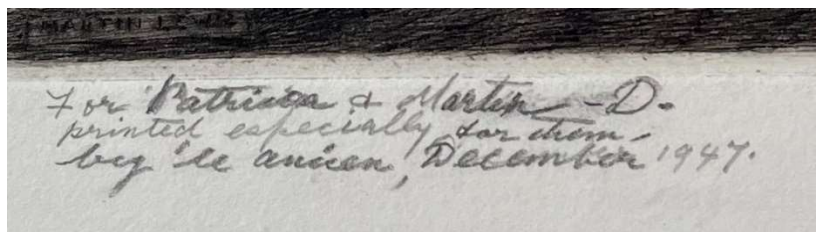 MARTIN LEWIS
For Patricia & Martin - D.
printed especially for them -
by 'le ancien', December 1947.